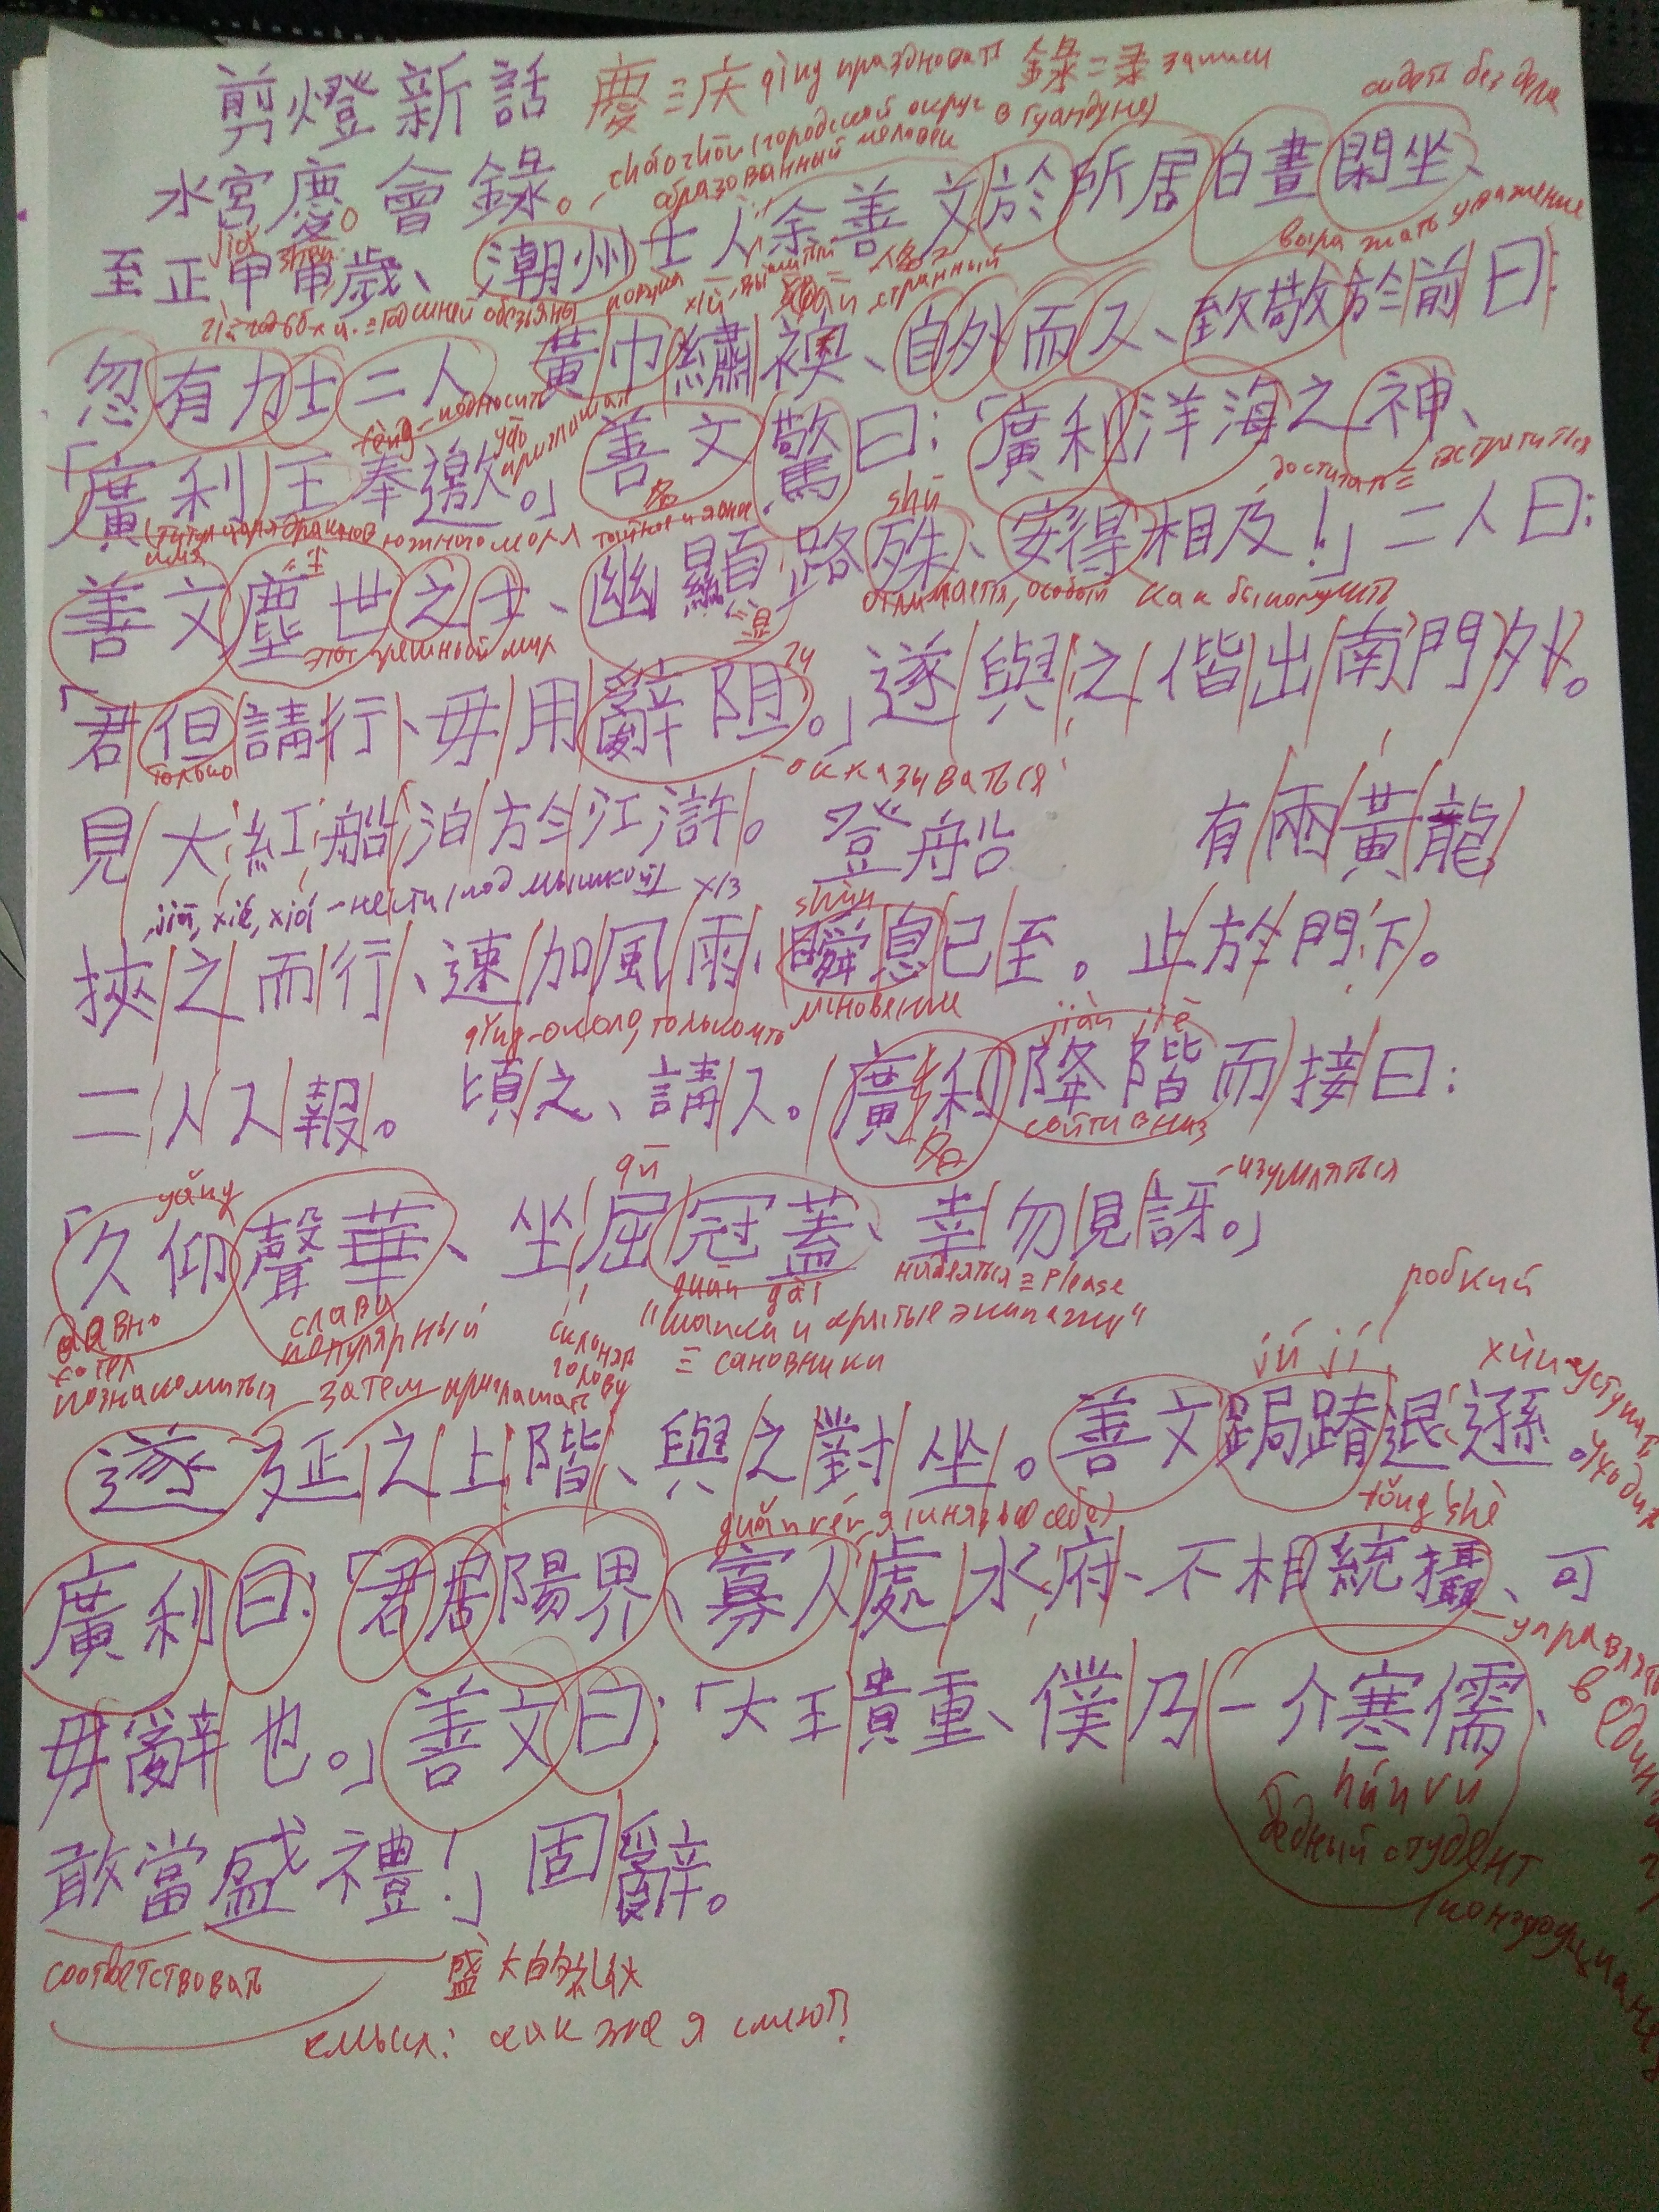 剪燈新話 慶=庆 qìng праздновать 錄=录 записи
сидеть без дела
cháozhōu (городской округ в Гуандуне)
образованный человек
水宮慶會錄。
至正甲申歲、潮州士人余善文於所居白晝閑坐、
выражать уважение
忽有力士二人 黃巾繡襖、自外而入、致敬於前曰:
「廣利王奉邀。」善文驚曰:「廣利洋海之神、
善文塵世之士、幽顯路殊、安得相及!」二人曰:
этот грешный мир
как бы получить
「君但請行、毋用辭阻。」遂與之偕出南門外。
только
見大紅船泊於江滸。登船 有兩黃龍
jiā, xié, xiá - нести (под мышкой)
shùn
挾之而行、速加風雨、瞬息已至。止於門下。
мгновение
jiàn jiē
二人入報。頃之、請入。廣利降階而接曰:
сойти вниз
yǎng qū изумляться
「久仰聲華、坐屈冠蓋、幸勿見訝。」
guān gài надеяться = please
давно хотел познакомиться
слава популярный
склонять голову
"шапки и крытые экипажи" = сановники
робкий
затем приглашать jú jí
遂延之上階、與之對坐。善文跼蹐退遜。
tǒng shè
廣利曰:「君居陽界、寡人處水府、不相統攝、可
毋辭也。」善文曰:「大王貴重、僕乃一介寒儒、
hán rú
бедный студент
敢當盛禮!」固辭。
соответствовать 盛大的礼仪
смысл: как же я смею?